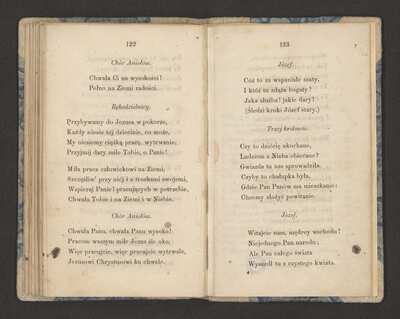 122
Chór Aniołów.
Chwała Ci na wysokości!
Pełno na Ziemi radości.
Rękodzielnicy.
Przybywamy do Jezusa w pokorze,
Każdy niesie tej dziecinie, co może,
My niesiemy ciężką pracę, wytrwanie,
Przyjmij dary miłe Tobie, o Panie!
Miła praca człowiekowi na Ziemi;
Szczęśliw' przy niéj i z troskami swojemi,
Wspieraj Panie! pracujących w potrzebie,
Chwała Tobie i na Ziemi i w Niebie.
Chór Aniołów.
Chwała Panu, chwała Panu wysoko!
Pracom waszym miłe Jezusa oko,
Więc pracujcie, więc pracujcie wytrwale,
Jezusowi Chrystusowi ku chwale.
123
Józef.
Cóż to za wspaniałe szaty,
I któż tu zdąża bogaty?
Jaka służba! jakie dary?
(Śledzi kroki Józef stary.)
Trzej królowie.
Czy to dziécię ukochane,
Ludziom z Nieba obiecane?
Gwiazda tu nas sprowadziła.
Czyby to chałupka była,
Gdzie Pan Panów ma mieszkanie:
Chcemy złożyć powitanie.
Józef.
Witajcie nam, mędrcy wschodu!
Niejednego Pan narodu;
Ale Pan całego świata
Wyszedł tu z czystego kwiata.